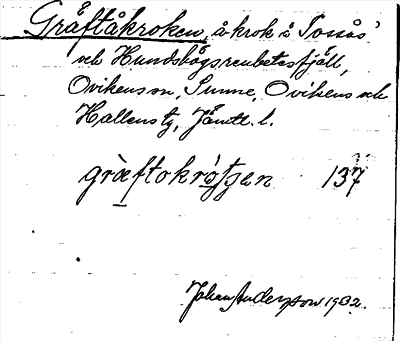 Gråftåkroken, å krok å Tossås'
och Hundshögsrenbetesfjäll,
Ovikens sn, Sunne, Ovikens och
Hallens tg, Jämtl. l.
græftokrȯtʃen 137
Johan Anderzson 1932.